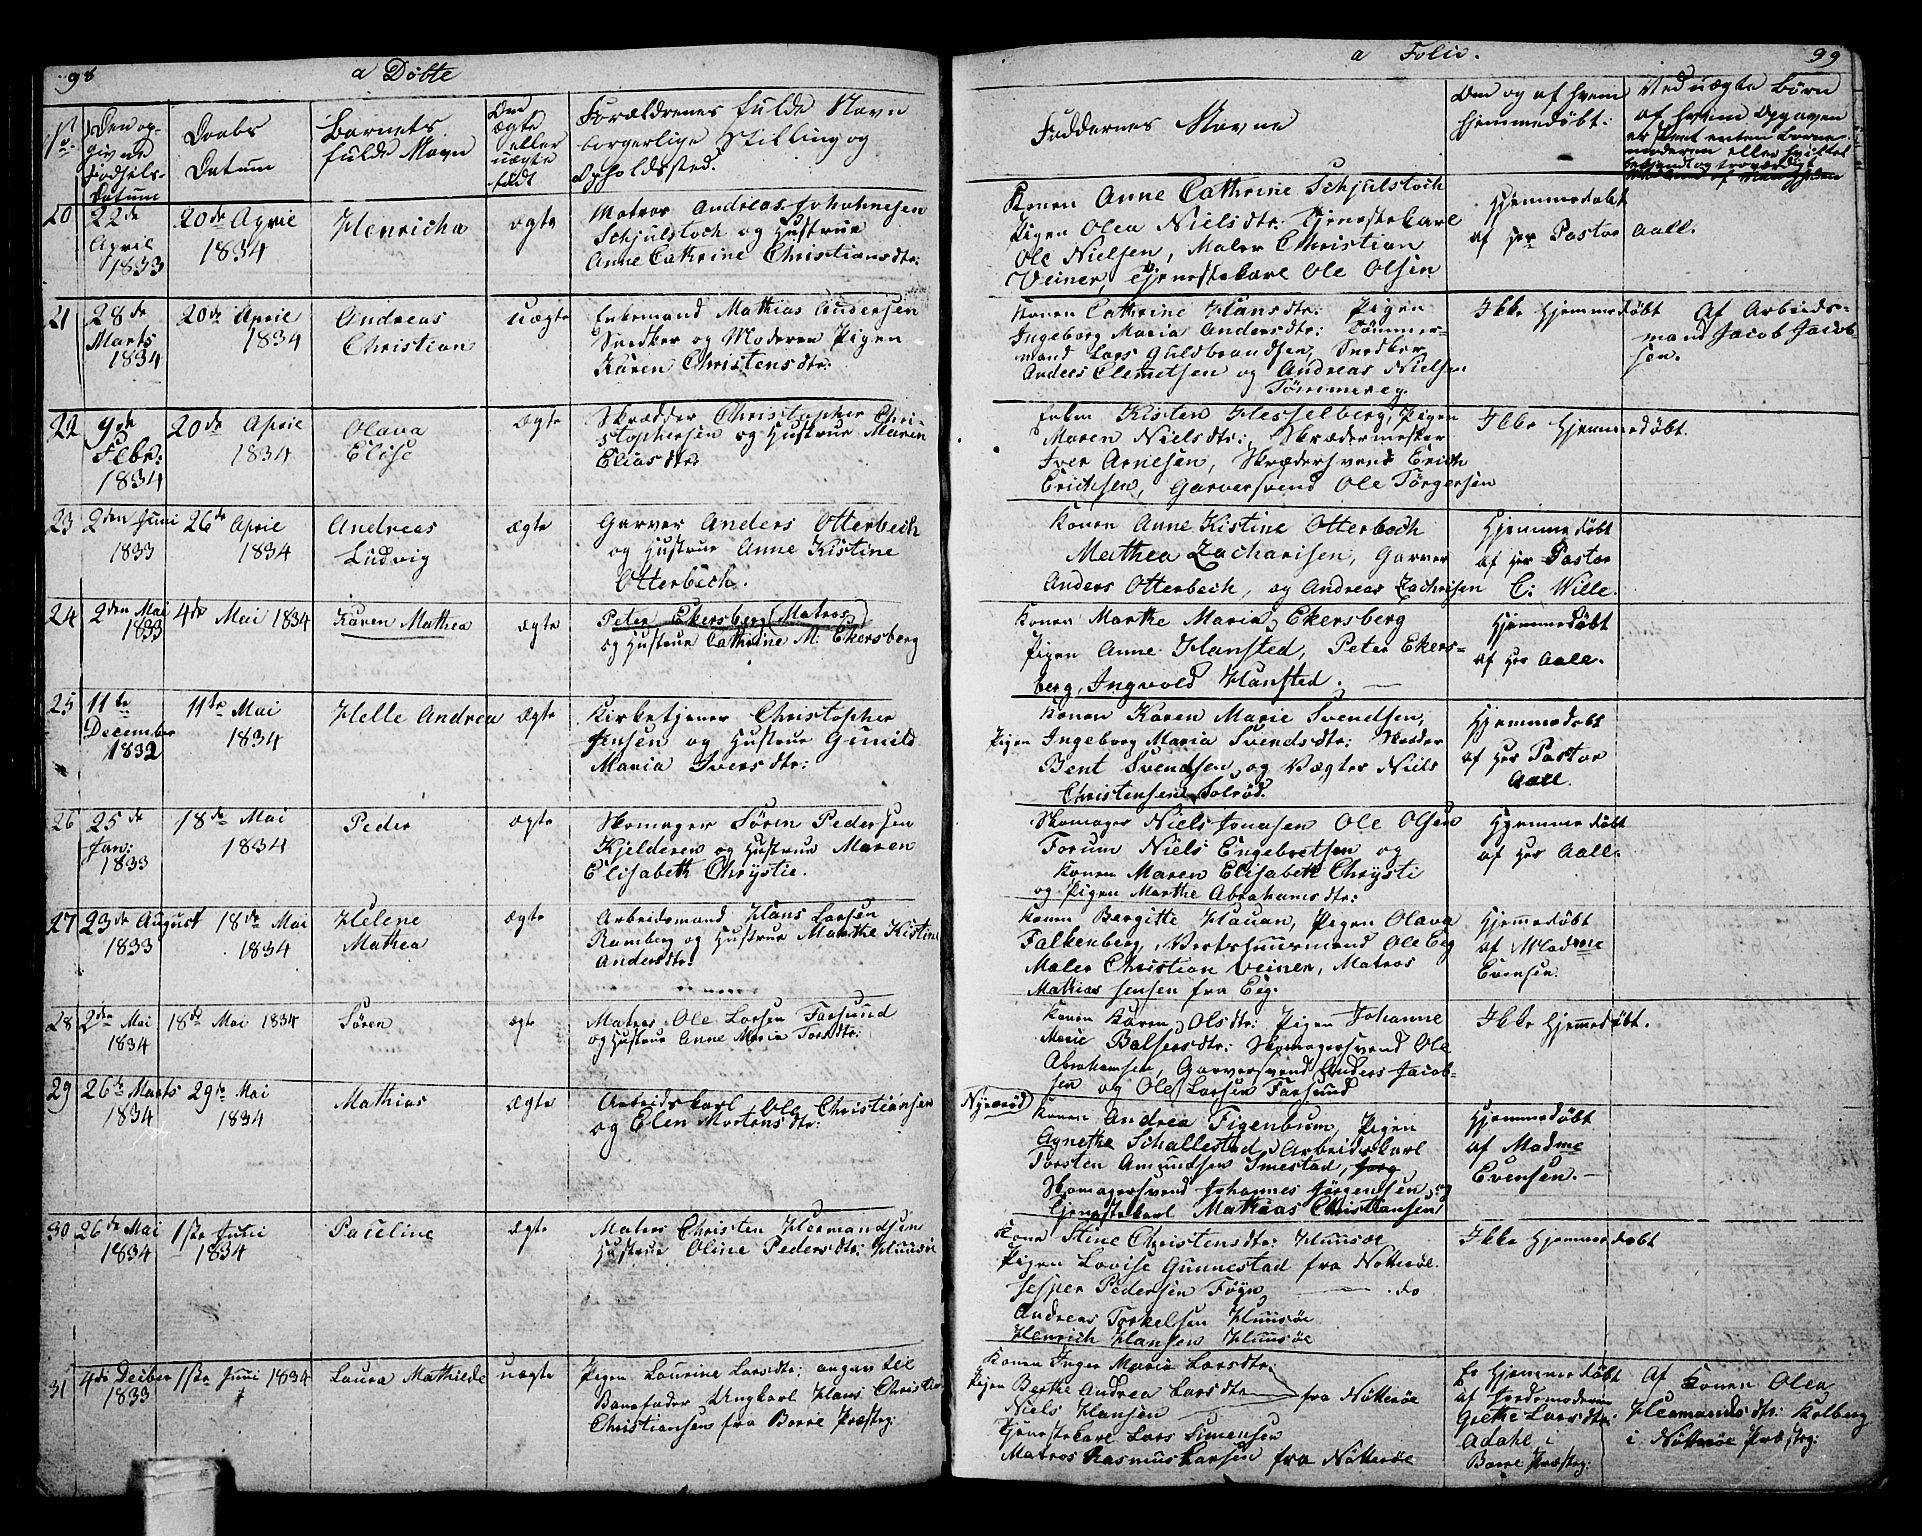 98 a Døbte
No.
Den opgivne Fødsels-Datum
Daabs Datum
Barnets fulde Navn
Om ægte eller uægte født
Forældrenes fulde Navn
borgerlige Stilling og
Opholdssted.
20
22de April 1833
20de April 1834
Henricha
ægte
Matros Andreas Johannesen
Schjulstoch og Hustrue
Anne Cathrine Christiansdtr:
21
28de Marts 1834
20de April 1834
Andreas
Christian
uægte
Enkemand Mathias Andersen
Snedker og Moderen Pigen
Karen Christensdtr:
22
9de Febr: 1834
20de April 1834
Olava
Elise
ægte
Skrædder Christopher Chri-
stophersen og Hustrue Maren
Eliasdtr:
23
2den Juni 1833
26de April 1834
Andreas
Ludvig
ægte
Garver Anders Otterbech
og Hustrue Anne Kistine
Otterbech.
24
2den Mai 1833
4de Mai 1834
Karen Mathea
ægte
Peter Ekersberg (Matros)
og Hustrue Cathrine M: Ekersberg
25
11te December 1832
11te Mai 1834
Helle Andrea
ægte
Kirketjener Christopher
Jensen og Hustrue Gunild
Maria Iversdtr:
26
25de Jan: 1833
18de Mai 1834
Peder
ægte
Skomager Søren Pedersen
Kjelderen og Hustrue Maren
Elisabeth Chrystie.
27
23de August 1833
18de Mai 1834
Helene
Mathea
ægte
Arbeidsmand Hans Larsen
Ramberg og Hustrue Marthe Kistine
Andersdtr:
28
2den Mai 1834
18de Mai 1834
Søren
ægte
Matros Ole Larsen Farsund
og Hustrue Anne Maria Torsdtr:
29
26de Marts 1834
29de Mai 1834
Mathias
ægte
Arbeidskarl Ole Christiansen
og Elen Mortensdtr:
30
26de Mai 1834
1ste Juni 1834
Pauline
ægte
Matros Christen Hermandsen
Hustrue Oline Pedersdtr: Huusøe
31
4de Decber 1833
1ste Juni 1834
Laura Mathilde
uægte
Pigen Laurine Larsdtr: angav til
Barnefader Ungkarl Hans Christian
Christiansen fra Borre Præstg:
a Folio. 99
Faddernes Navne
Om og af hvem
Hjemmedøbt:
Ved uægte Børn
af hvem Opgaven
er skeet enten Barne-
moderen eller hvilket
bekjendt og troværdigt
Konen Anne Cathrine Schjulstoch
Pigen Olea Nielsdtr: Tjenestekarl
Ole Nielsen, Maler Christian
Veiner, Tjenestekarl Ole Olsen
Hjemmedøbt
af Hr Pastor Aall.
Konen Cathrine Hansdtr: Pigen
Ingeborg Maria Andersdtr: Tømmer-
mand Lars Guldbrandsen, Snedker
Anders Clemetsen og Andreas Nielsen
Tømmereg.
Ikke Hjemmedøbt
Af Arbeids-
mand Jacob Jacob-
sen.
Enken Kisten Hesselberg, Pigen
Maren Nielsdtr:, Skrædermester
Iver Arnesen, Skrædersvend Erich
Erichsen, Garversvend Ole Torgersen
Ikke Hjemmedøbt.
Konen Anne Kistine Otterbech
Mathea Zacharisen, Garver
Anders Otterbech, og Andreas Zachrisen
Hjemmedøbt
af Hr Pastor
C. Wille.
Konen Marthe Maria Ekersberg
Pigen Anne Hansted, Peter Ekers-
berg, Ingvold Hansted.
Hjemmedøbt
af Hr Aall.
Konen Karen Marie Svendsen,
Pigen Ingeborg Maria Svendsdtr: Skræder
Bent Svendsen, og Vægter Niels
Christensen Solrød.
Hjemmedøbt
af Hr Pastor
Aall.
Skomager Niels Jonasen Ole Olsen
Forum Niels Engebretsen og
Konen Maren Elisabeth Chrysti
og Pigen Marthe Abrahamsdtr:
Hjemmedøbt
af Hr Aall.
Konen Bergitte Hauan, Pigen Olava
Falkenberg, Vertshuusmand Ole Eeg
Maler Christian Veiner, Matros
Mathias Jensen fra Eeg.
Hjemmedøbt
af Madme
Evensen.
Konen Karen Olsdtr: Pigen Johanne
Marie Balsersdtr: Skomagersvend Ole
Abrahamsen, Garversvend Anders Jacob-
sen og Ole Larsen Farsund
Ikke Hjemmedøbt.
Nyerød
Konen Andrea Figenbum, Pigen
Agnethe Schallestad, Arbeidskarl
Torsten Amundsen Smestad,
Skomagersvend Johannes Jørgensen, og
Tjenestekarl Mathias Christiansen
Hjemmedøbt
af Madme
Evensen.
Kone Stine Christensdtr: Huusøe
Pigen Lovise Gunnestad fra Nøtterøe.
Jesper Pedersen Føyn do
Andreas Torkelsen Huusøe
Henrich Hansen Huusøe
Ikke Hjemmedøbt
Konen Inger Maria Larsdtr:
Pigen Berthe Andrea Larsdtr
Niels Hansen fra Nøtterøe
Tjenestekarl Lars Simensen
Matros Rasmus Larsen fra Nøtterøe
Er Hjemmedøbt
af Jordemoderen
Grethe Larsdtr:
Adahl i
Borre Præstg:
Af Konen Olea
Hermandsdtr: Kolberg
i Nøtterøe Præstg: